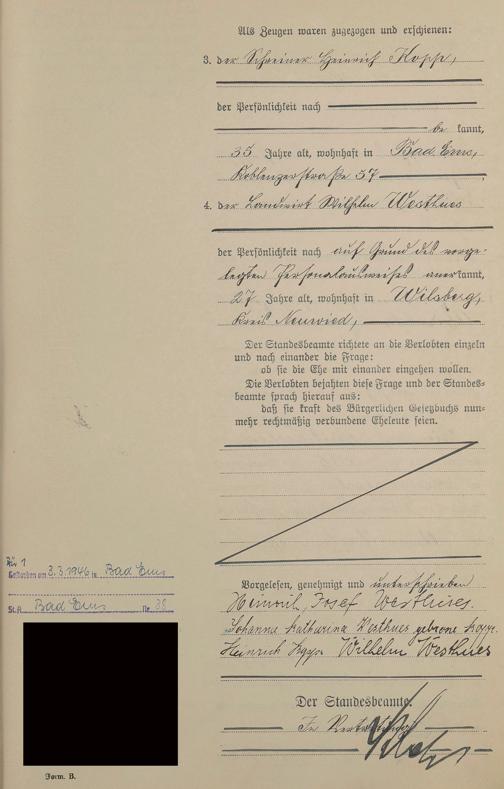 Als Zeugen waren zugezogen und erschienen:
3. der Schreiner Heinrich Kopp,
der Persönlichkeit nach
be kannt,
35 Jahre alt, wohnhaft in Bad Ems,
Koblenzerstraße 57
4. der Landwirt Wilhelm Westhues
der Persönlichkeit nach auf Grund des vorge-
legten Personalausweises anerkannt,
27 Jahre alt, wohnhaft in Wilsberg,
Kreis Neuwied,
Der Standesbeamte richtete an die Verlobten einzeln
und nach einander die Frage:
ob sie die Ehe mit einander eingehen wollen.
Die Verlobten bejahten diese Frage und der Standes-
beamte sprach hierauf aus:
daß sie kraft des Bürgerlichen Gesetzbuchs nun-
mehr rechtmäßig verbundene Eheleute seien.
Zu 1
Gestorben am 3.3.1946 in Bad Ems
St.A. Bad Ems Nr. 38
Vorgelesen, genehmigt und unterschrieben
Heinrich, Josef Westhues.
Johanna Katharina Westhues geborene Kopp.
Heinrich Kopp Wilhelm Westhues
Der Standesbeamte.
In Vertretung
Form. B.